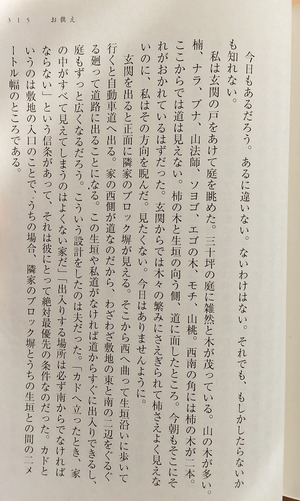 315　お供え
今日もあるだろう。あるに違いない。ないわけはない。それでも、もしかしたらないか
も知れない。
私は玄関の戸をあけて庭を眺めた。三十坪の庭に雑然と木が茂っている。山の木が多い。
楠、ナラ、ブナ、山法師、ソヨゴ、エゴの木、モチ、山桃。西南の角には柿の木が二本。
ここからでは道は見えない。柿の木と生垣の向う側、道に面したところ。今朝もそこにそ
れがおかれているはずだった。玄関からでは木々の繁みにさえぎられて柿さえよく見えな
いのに、私はその方向を睨んだ。見たくない。今日はありませんように。
玄関を出ると正面に隣家のブロック塀が見える。そこから西へ曲って生垣沿いに歩いて
行くと自動車道へ出る。家の西側が道なのだから、わざわざ敷地の東と南の二辺をぐるぐ
る廻って道路に出ることになる。この生垣や私道がなければ道からすぐに出入りできるし、
庭もずっと広くなるだろう。こういう設計をしたのは夫だった。「カドへ立ったとき、家
の中がすべて見えてしまうのはよくない家だ」「出入りする場所は必ず南からでなければ
ならない」という信条があって、それは彼にとって絶対最優先の条件なのだった。カドと
いうのは敷地の入口のことで、うちの場合、隣家のブロック塀とうちの生垣との間の二メ
ートル幅のところである。